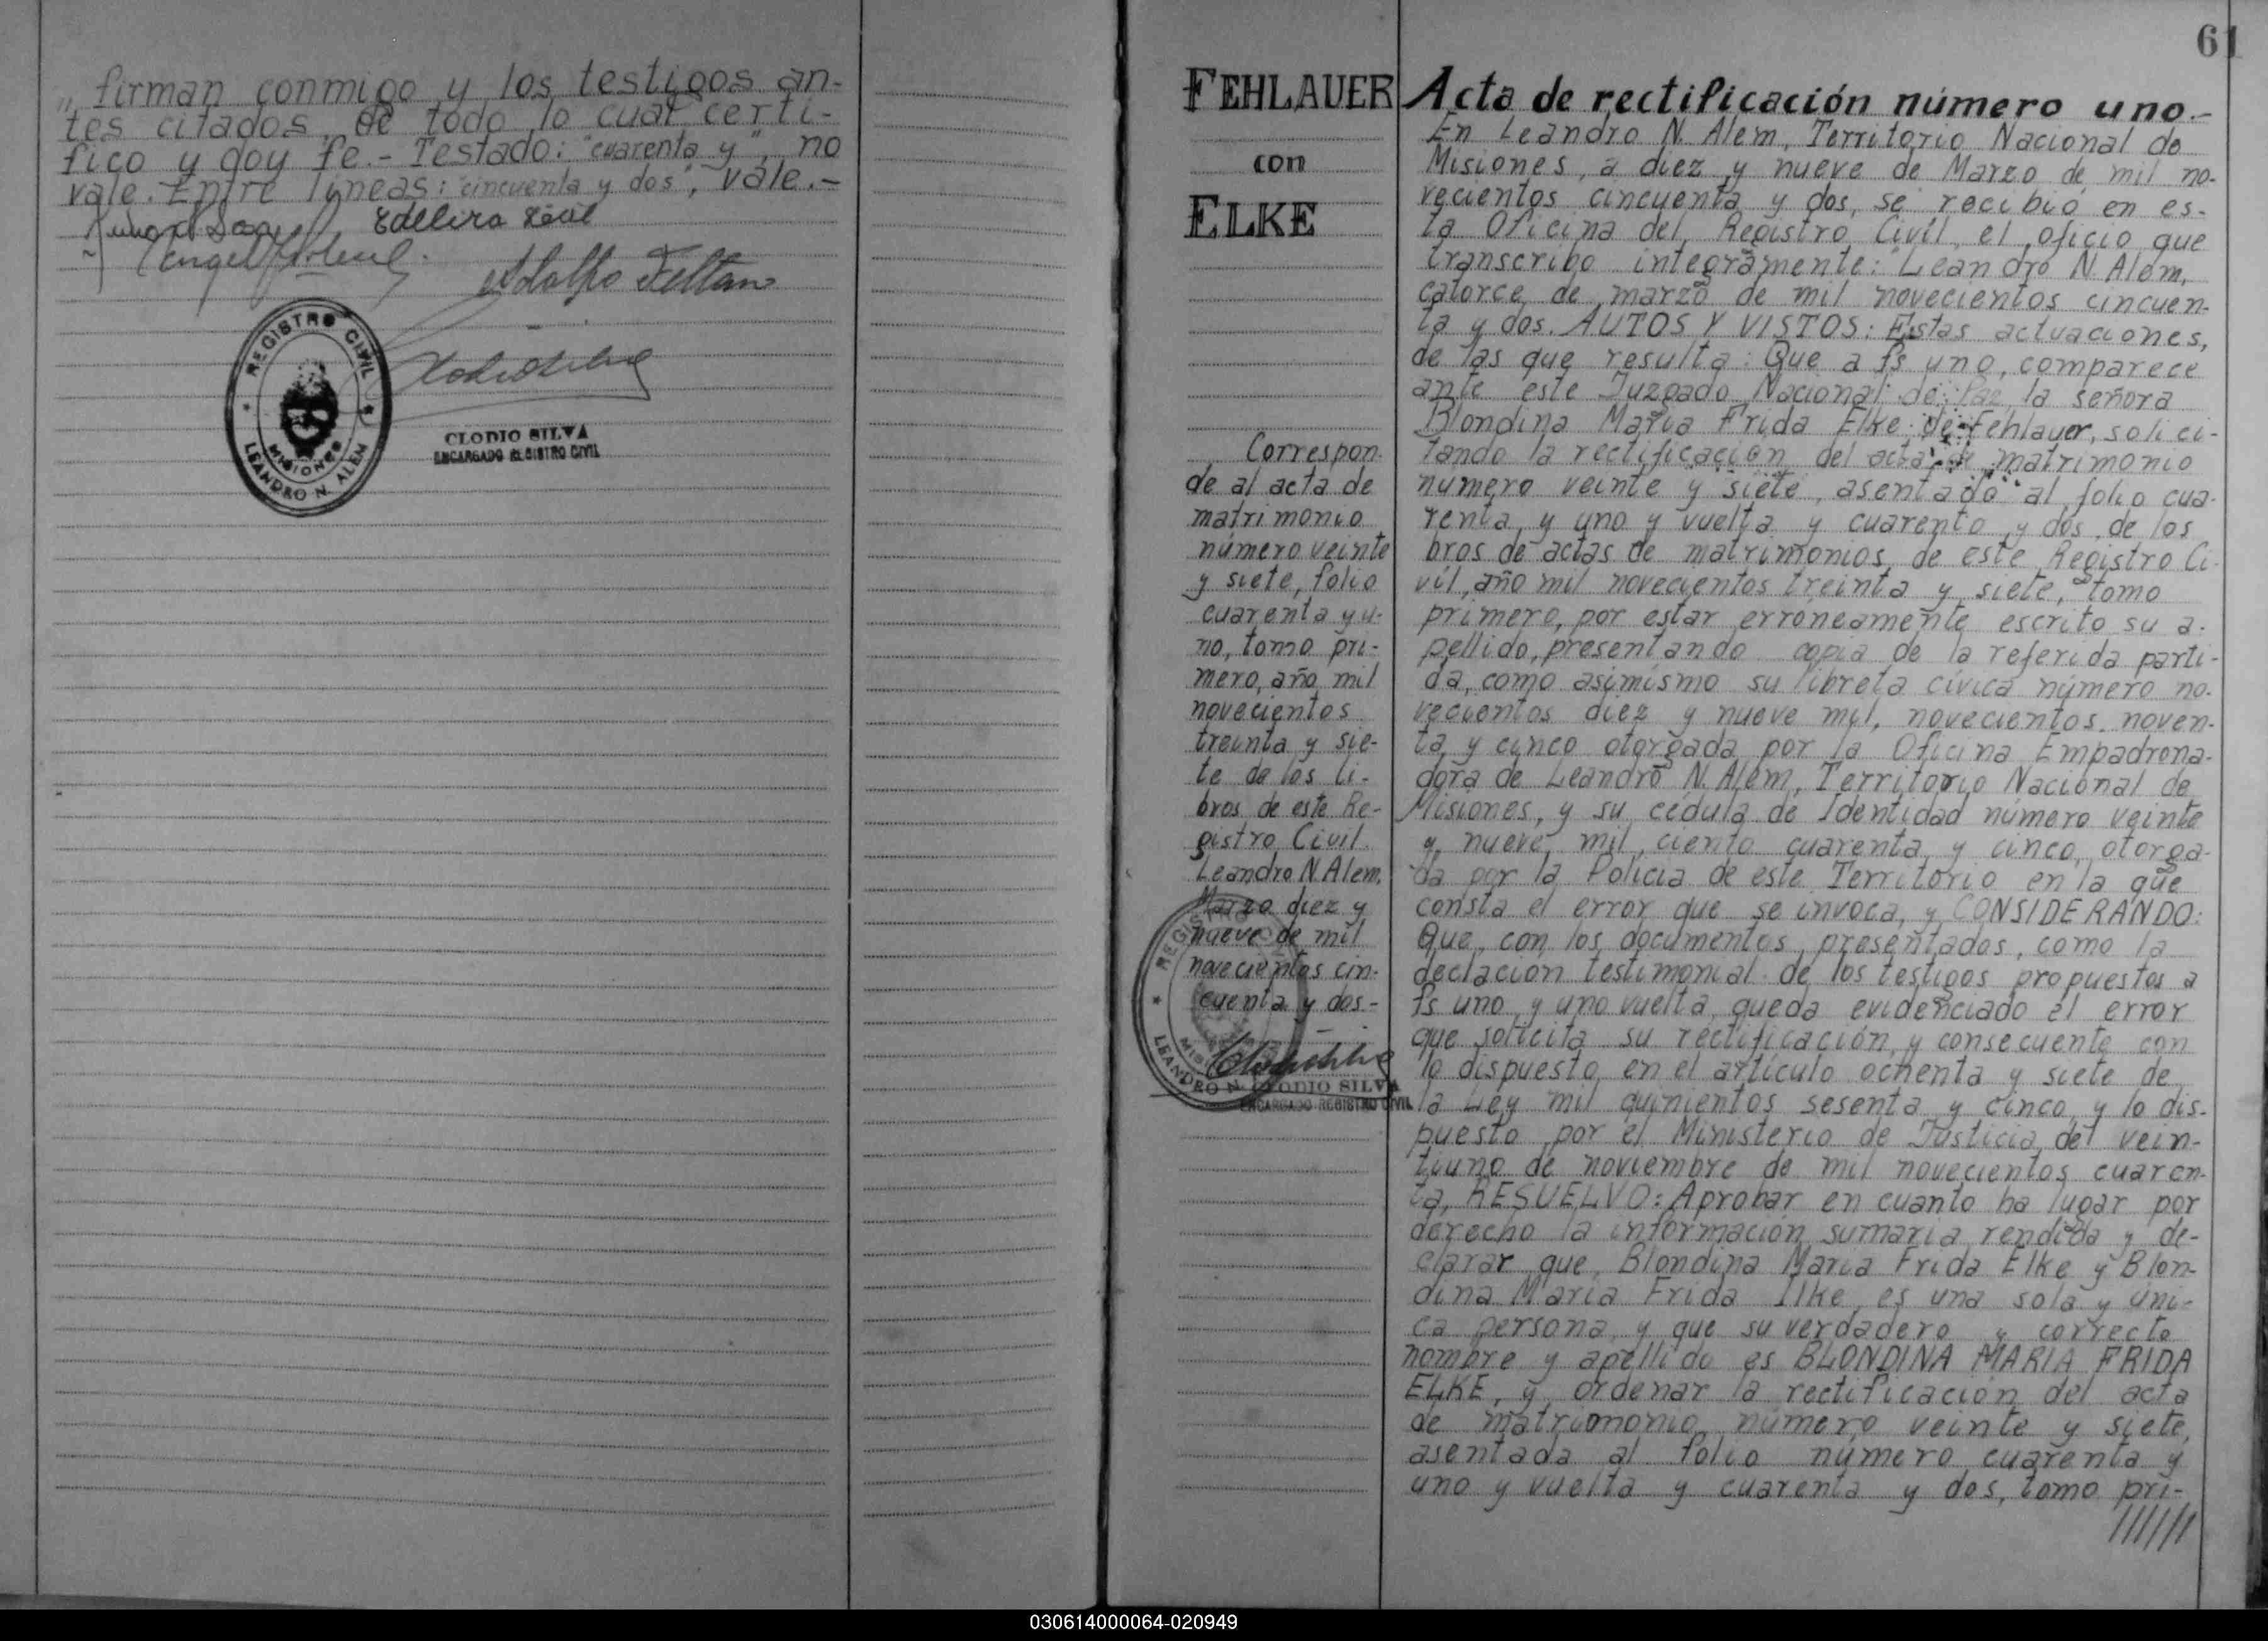 „ firman conmigo y los testigos an-
tes citados, de todo lo cual certi-
fico y doy fe.- Testado: "cuarenta y", no
vale. Entre líneas: "cincuenta y dos", vale.-
Adolfo
REGISTRO CIVIL
MISIONES
LEANDRO N. ALEM
CLODIO SILVA
ENCARGADO REGISTRO CIVIL
61
FEHLAUER
con
ELKE
Correspon-
de al acta de
matrimonio
número veinte
y siete, folio
cuarenta y u-
no, tomo pri-
mero, año mil
novecientos
treinta y sie-
te de los li-
bros de este Re-
gistro Civil.
Leandro N. Alem,
Marzo diez y
nueve de mil
novecientos cin-
cuenta y dos-
REGISTRO
LEANDRO N.
CLODIO SILVA
ENCARGADO REGISTRO CIVIL
Acta de rectificación número uno.-
En Leandro N. Alem, Territorio Nacional de
Misiones, a diez y nueve de Marzo de mil no-
vecientos cincuenta y dos, se recibió en es-
ta Oficina del Registro Civil, el oficio que
transcribo integramente: "Leandro N. Alem,
catorce de marzo de mil novecientos cincuen-
ta y dos. AUTOS Y VISTOS: Estas actuaciones,
de las que resulta: Que a fs uno, comparece
ante este Juzgado Nacional de Paz, la señora
Blondina María Frida Elke de Fehlauer, solici-
tando la rectificación del acta de matrimonio
número veinte y siete, asentado al folio cua-
renta y uno y vuelta y cuarenta y dos, de los
bros de actas de matrimonios, de este Registro Ci-
vil, año mil novecientos treinta y siete, tomo
primero, por estar erroneamente escrito su a-
pellido, presentando copia de la referida parti-
da, como asimismo su libreta cívica número no-
vecientos diez y nueve mil, novecientos noven-
ta y cinco otorgada por la Oficina Empadrona-
dora de Leandro N. Alem, Territorio Nacional de
Misiones, y su cédula de Identidad número veinte
y nueve mil, ciento cuarenta y cinco, otorga-
da por la Policía de este Territorio en la que
consta el error que se invoca, y CONSIDERANDO:
Que, con los documentos presentados, como la
declación testimonial de los testigos propuestos a
fs uno y uno vuelta, queda evidenciado el error
que solicita su rectificación, y consecuente con
lo dispuesto en el artículo ochenta y siete de
la Ley mil quinientos sesenta y cinco, y lo dis-
puesto por el Ministerio de Justicia del vein-
tiuno de noviembre de mil novecientos cuaren-
ta, RESUELVO: Aprobar en cuanto ha lugar por
derecho la información sumaria rendida y de-
clarar que, Blondina María Frida Elke y Blon-
dina María Frida Ilke, es una sola y úni-
ca persona, y que su verdadero y correcto
nombre y apellido es BLONDINA MARIA FRIDA
ELKE, y ordenar la rectificación del acta
de matrimonio número veinte y siete,
asentada al folio número cuarenta y
uno y vuelta y cuarenta y dos, tomo pri-
//////
030614000064-020949